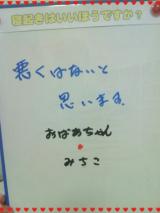 寝起きはいいほうですか?
悪くはないと
思います
おばあちゃん
みさこ